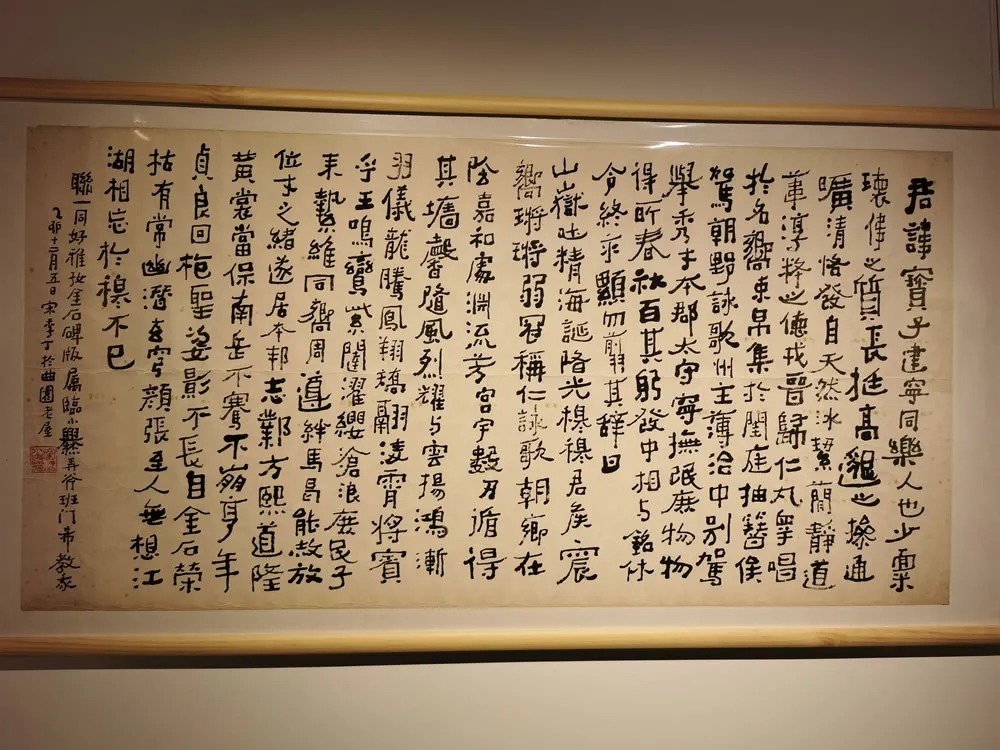 君諱寶子建寧同樂人也少稟
瓌偉之質長挺高邈之操通
曠清恪發自天然冰絜簡靜道
葦淳粹之德戎晉歸仁九皋唱
於名嚮束帛集於閨庭抽簪俟
駕朝野詠歌州主薄治中別駕
舉秀才本郡太守寧撫氓庶物物
得所春秋百其躬發中相与銘休
令終永顯勿翦其辞曰
山嶽吐精海誕陼光穆穆君矦震
嚮鏘鏘弱冠稱仁詠歌朝鄉在
陰嘉和處淵流芳宮宇數刃循得
其墻馨隨風烈耀与雲揚鴻漸
羽儀龍騰鳳翔矯翮淩霄將賓
乎王鳴鸞紫闥濯纓滄浪庶民子
来縶維同嚮周遵絆馬曷能赦放
位才之緒遂居本邦志鄴方熙道隆
黃裳當保南岳不騫不崩享年
貞良回抱聖姿影不長自金石榮
枯有常幽潛玄穹顏張至人無想江
湖相忘於穆不已
聯一同好雅好金石碑版属臨小爨弄斧班门希教我
乙卯十二月五日宋季丁於曲園老屋